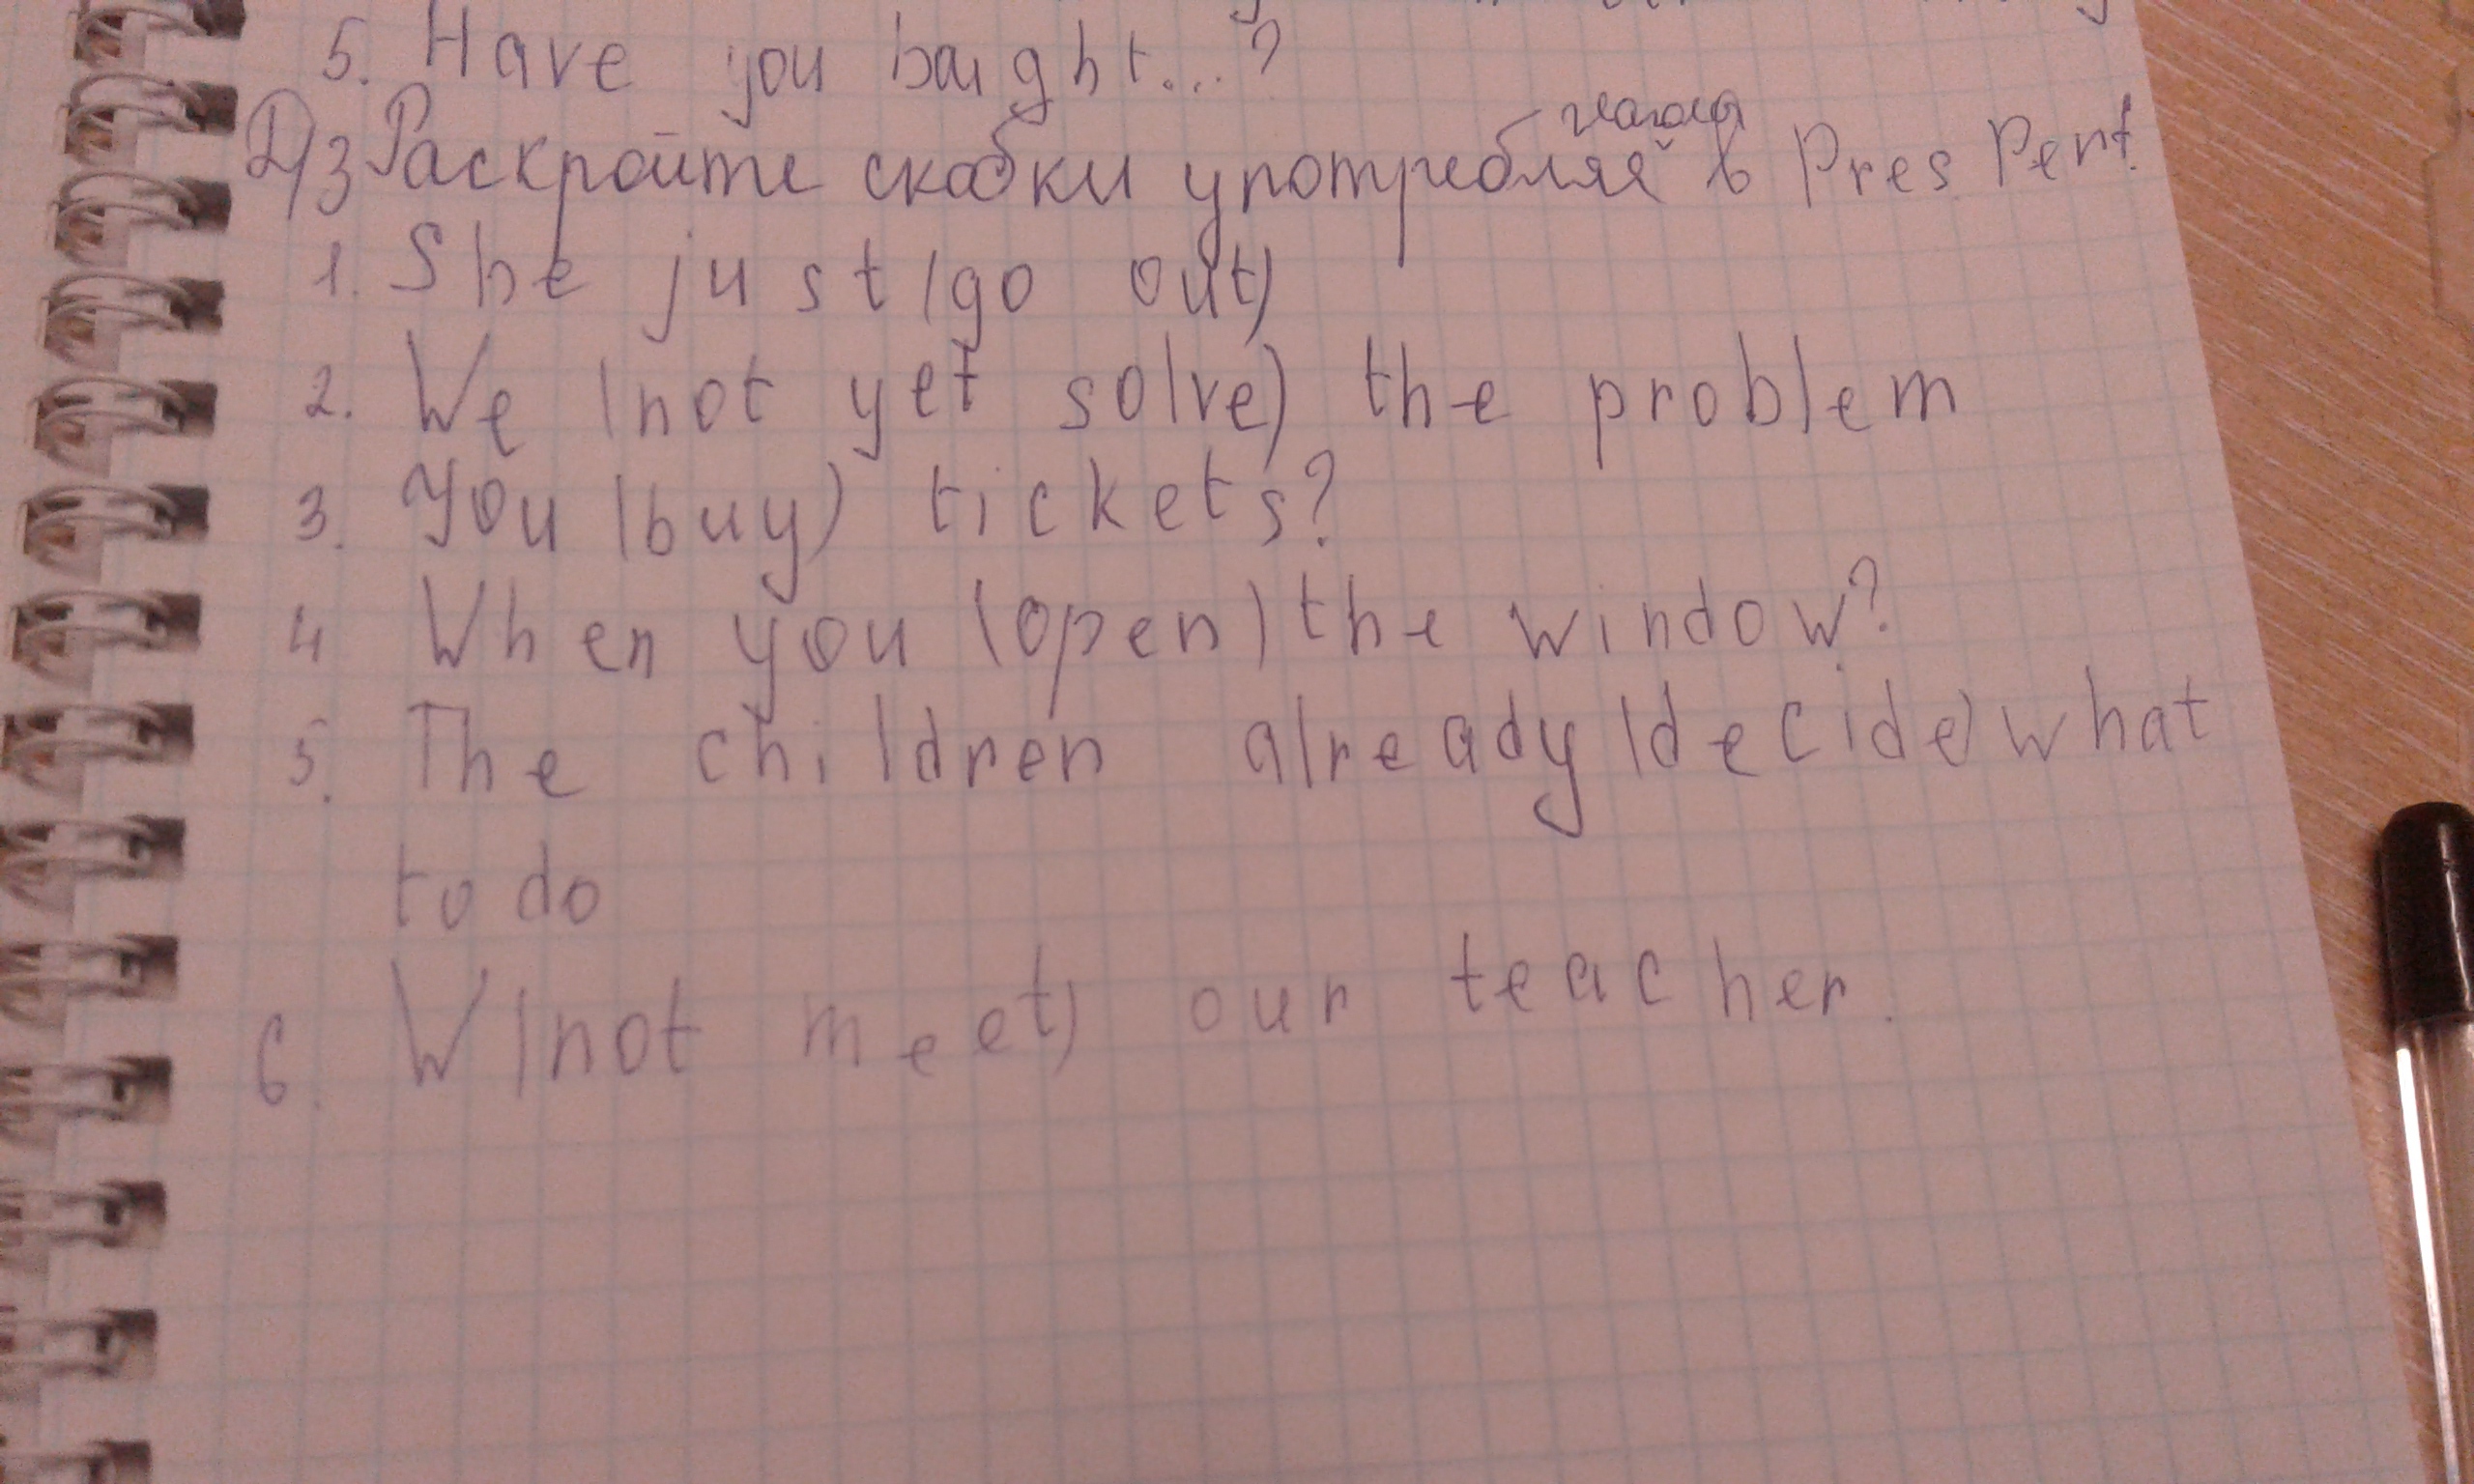 5. Have you baught...?
Д/з Раскройте скобки употребляя глаголы в Pres Perf.
1. She just (go out)
2. We (not yet solve) the problem
3. You (buy) tickets?
4 When you (open) the window?
5. The children already (decide) what
to do
6. W (not meet) our teacher.